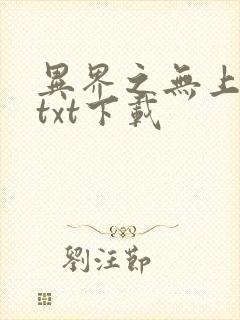 異界之無上
txt下載
劉汪節